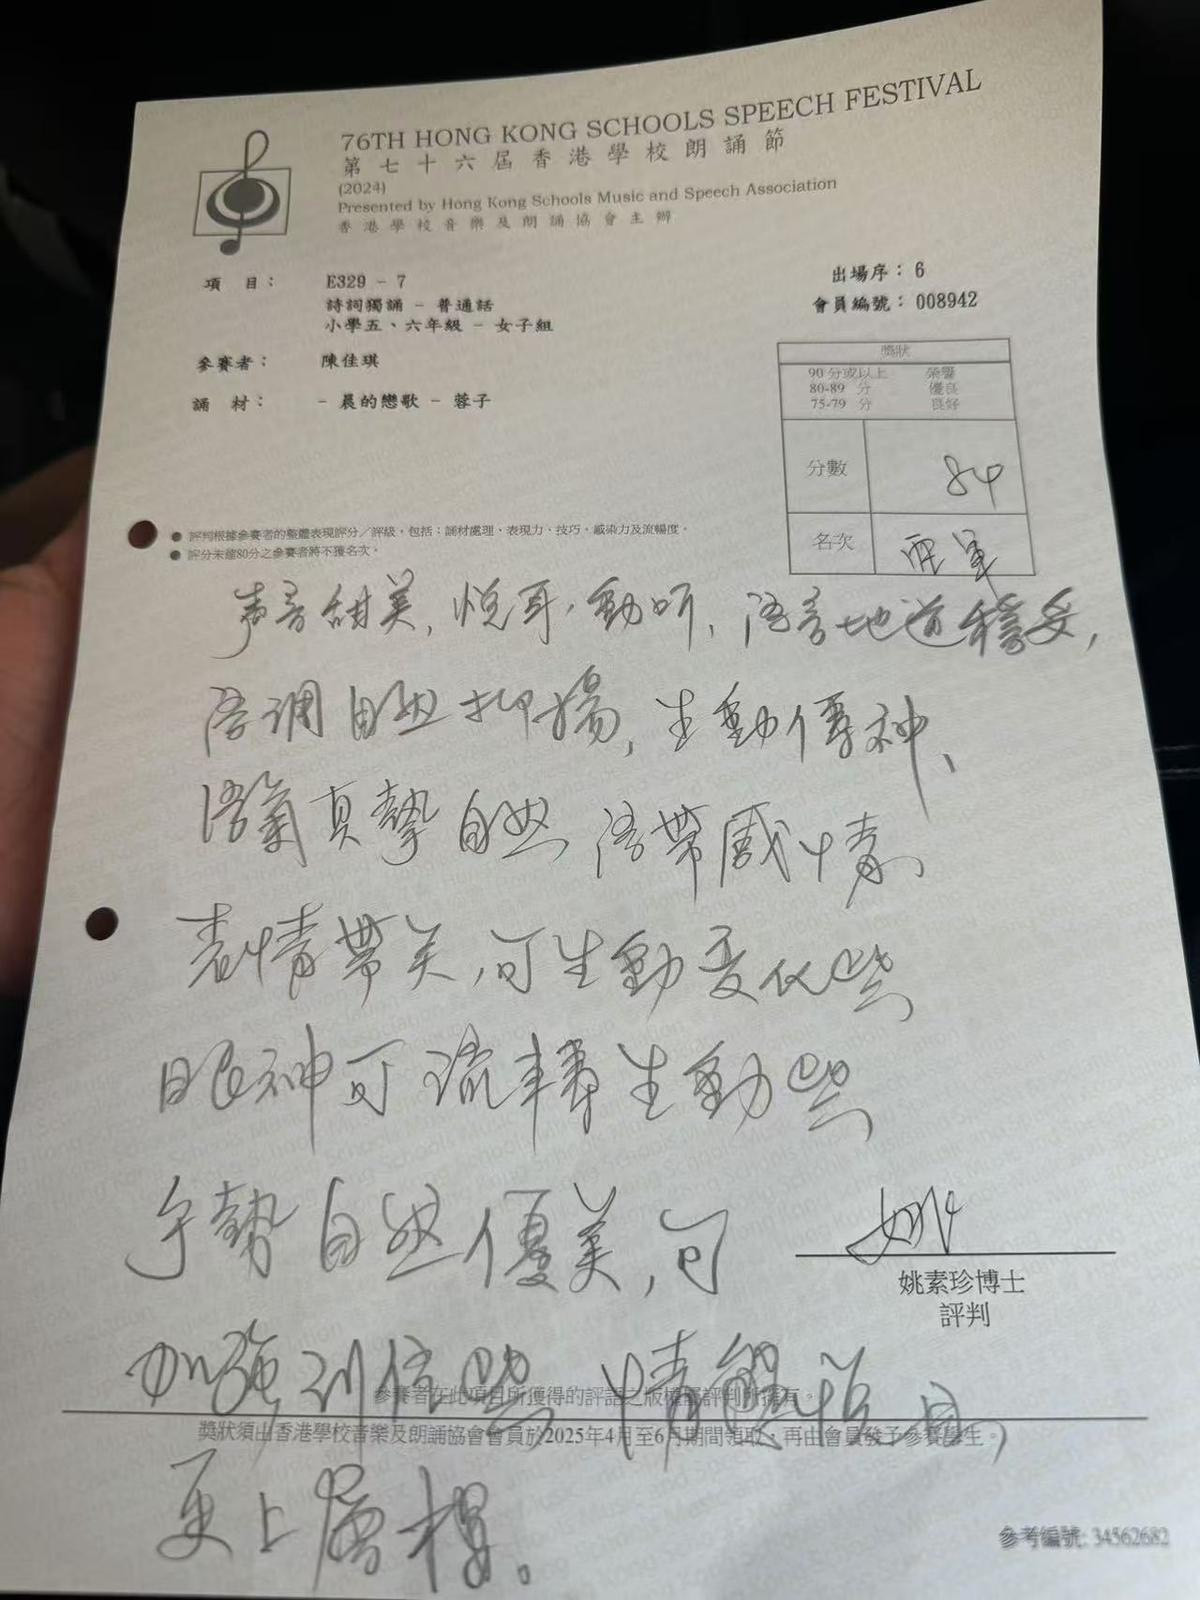 76TH HONG KONG SCHOOLS SPEECH FESTIVAL
第七十六屆香港學校朗誦節
(2024)
Presented by Hong Kong Schools Music and Speech Association
香港學校音樂及朗誦協會主辦
項 目： E329 - 7
詩詞獨誦 - 普通話
小學五、六年級 - 女子組
參賽者： 陳佳琪
誦 材： - 晨的戀歌 - 蓉子
出場序： 6
會員編號： 008942
獎狀
90 分或以上 榮譽
80-89 分 優良
75-79 分 良好
分數 84
名次
● 評判根據參賽者的整體表現評分／評級，包括：誦材處理、表現力、技巧、感染力及流暢度。
● 評分未達80分之參賽者將不獲名次。
声音甜美，悦耳動听，语音地道穩妥，
语调自然抑揚，生動傳神、
语氣真摯自然 语帶感情、
表情帶关，可生動变化些
眼神可流轉生動些
手勢自然優美，可
加強些 情態
更上層樓。
姚素珍博士
評判
參賽者在此項目所獲得的評語之版權屬評判所擁有。
獎狀須由香港學校音樂及朗誦協會會員於2025年4月至6月期間領取，再由會員發予參賽學生。
參考編號: 34562682